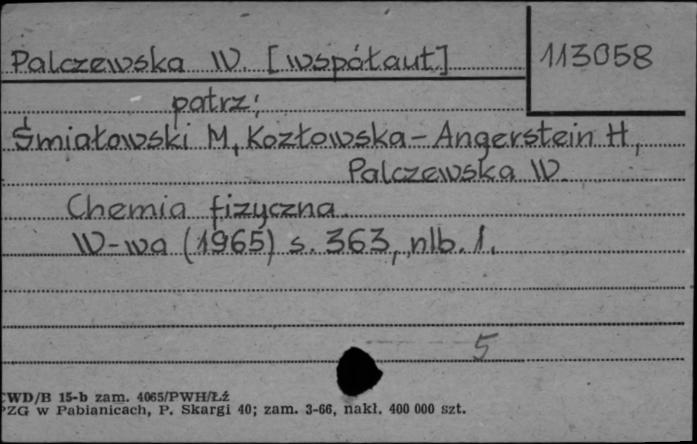 Palczewska W. [współaut.]
113058
patrz:
Śmiałowski M, Kozłowska-Angerstein H,
Palczewska W.
Chemia fizyczna.
W-wa (1965) s. 363, nlb. 1.
5
CWD/B 15-b zam. 4065/PWH/Łź
PZG w Pabianicach, P. Skargi 40; zam. 3-66, nakł. 400 000 szt.